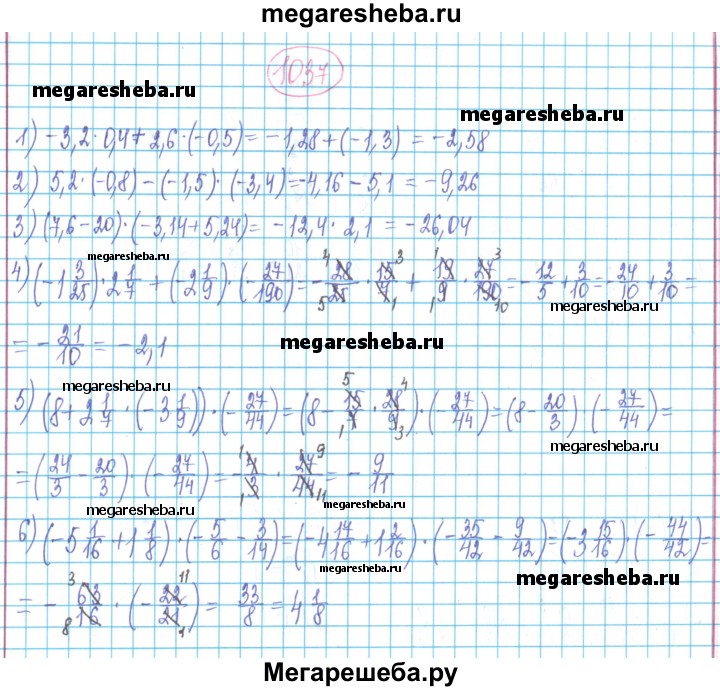 megaresheba.ru
1037
megaresheba.ru
megaresheba.ru
1) -3,2·0,4+2,6·(-0,5)=-1,28+(-1,3)=-2,58
2) 5,2·(-0,8)-(-1,5)·(-3,4)=-4,16-5,1=-9,26
3) (7,6-20)·(-3,14+5,24)=-12,4·2,1=-26,04
megaresheba.ru
4) (-1 3/25)·2 1/7+(-2 1/9)·(-27/190)=-28/25·15/7+19/9·27/190=-12/5+3/10=-24/10+3/10=
megaresheba.ru
=-21/10=-2,1
megaresheba.ru
megaresheba.ru
5) (8+2 1/7·(-3 1/9))·(-27/44)=(8-15/7·28/9)·(-27/44)=(8-20/3)·(-27/44)=
megaresheba.ru
=(24/3-20/3)·(-27/44)=-4/3·27/44=-9/11
megaresheba.ru
megaresheba.ru
6) (-5 1/16+1 1/8)·(-5/6-3/14)=(-4 17/16+1 2/16)·(-35/42-9/42)=(-3 15/16)·(-44/42)=
megaresheba.ru
megaresheba.ru
=-63/16·(-22/21)=33/8=4 1/8
Мегарешеба.ру